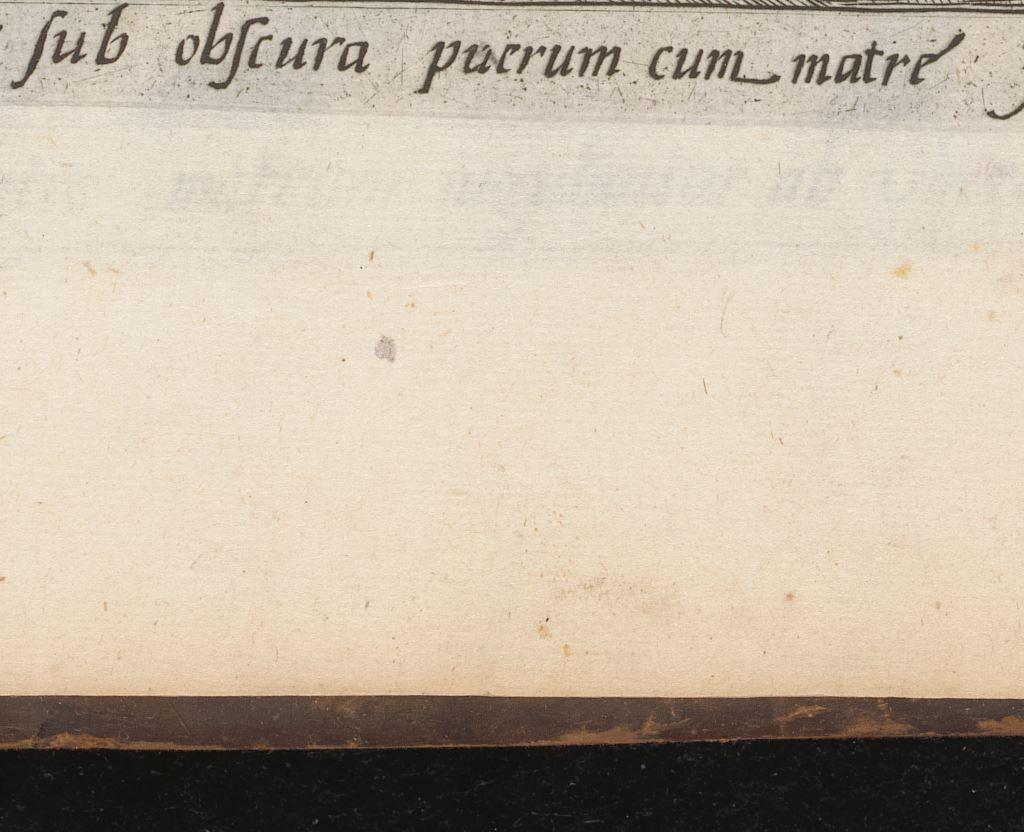 sub obscura puerum cum matre